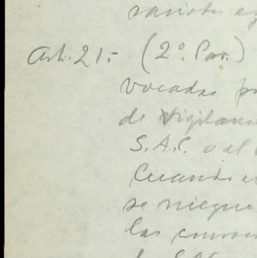 Art. 21.- (2º. Par.)
vocadas
de Vigilanc
S.A.C. o al
Cuando e
se niegue
las convoc